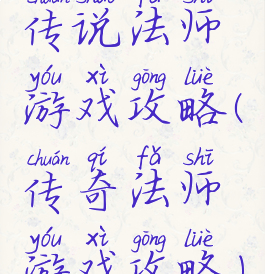 chuán shuō fǎ shī
传说法师
yóu xì gōng lüè
游戏攻略(
chuán qí fǎ shī
传奇法师
yóu xì gōng lüè
游戏攻略)